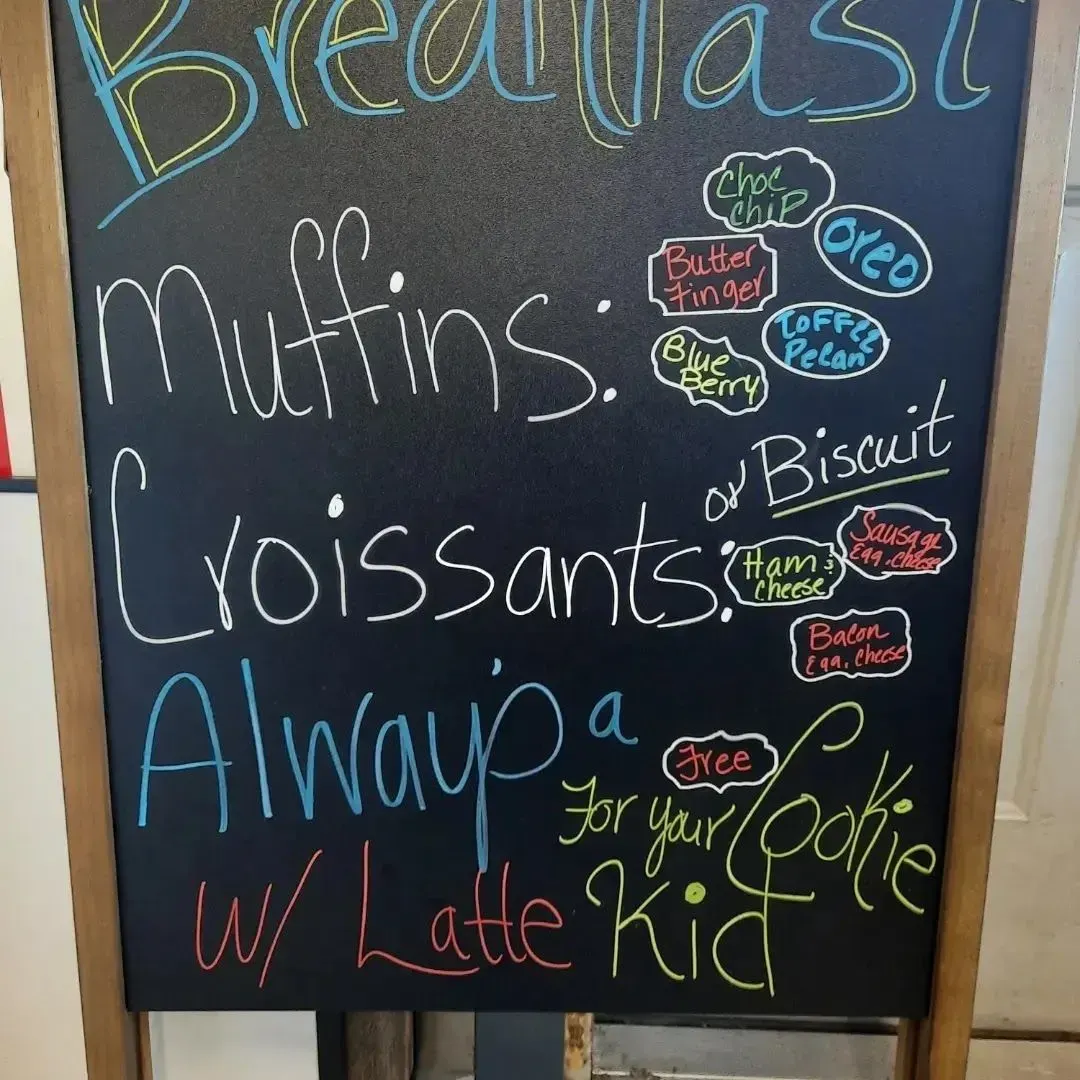 Breakfast
Muffins:
Choc
Chip
Oreo
Butter
Finger
Toffee
Pecan
Blue
Berry
or Biscuit
Croissants:
Ham &
Cheese
Sausage
Egg, Cheese
Bacon
Egg, Cheese
Alway's a
Free
Cookie
For your
Kid
w/ Latte